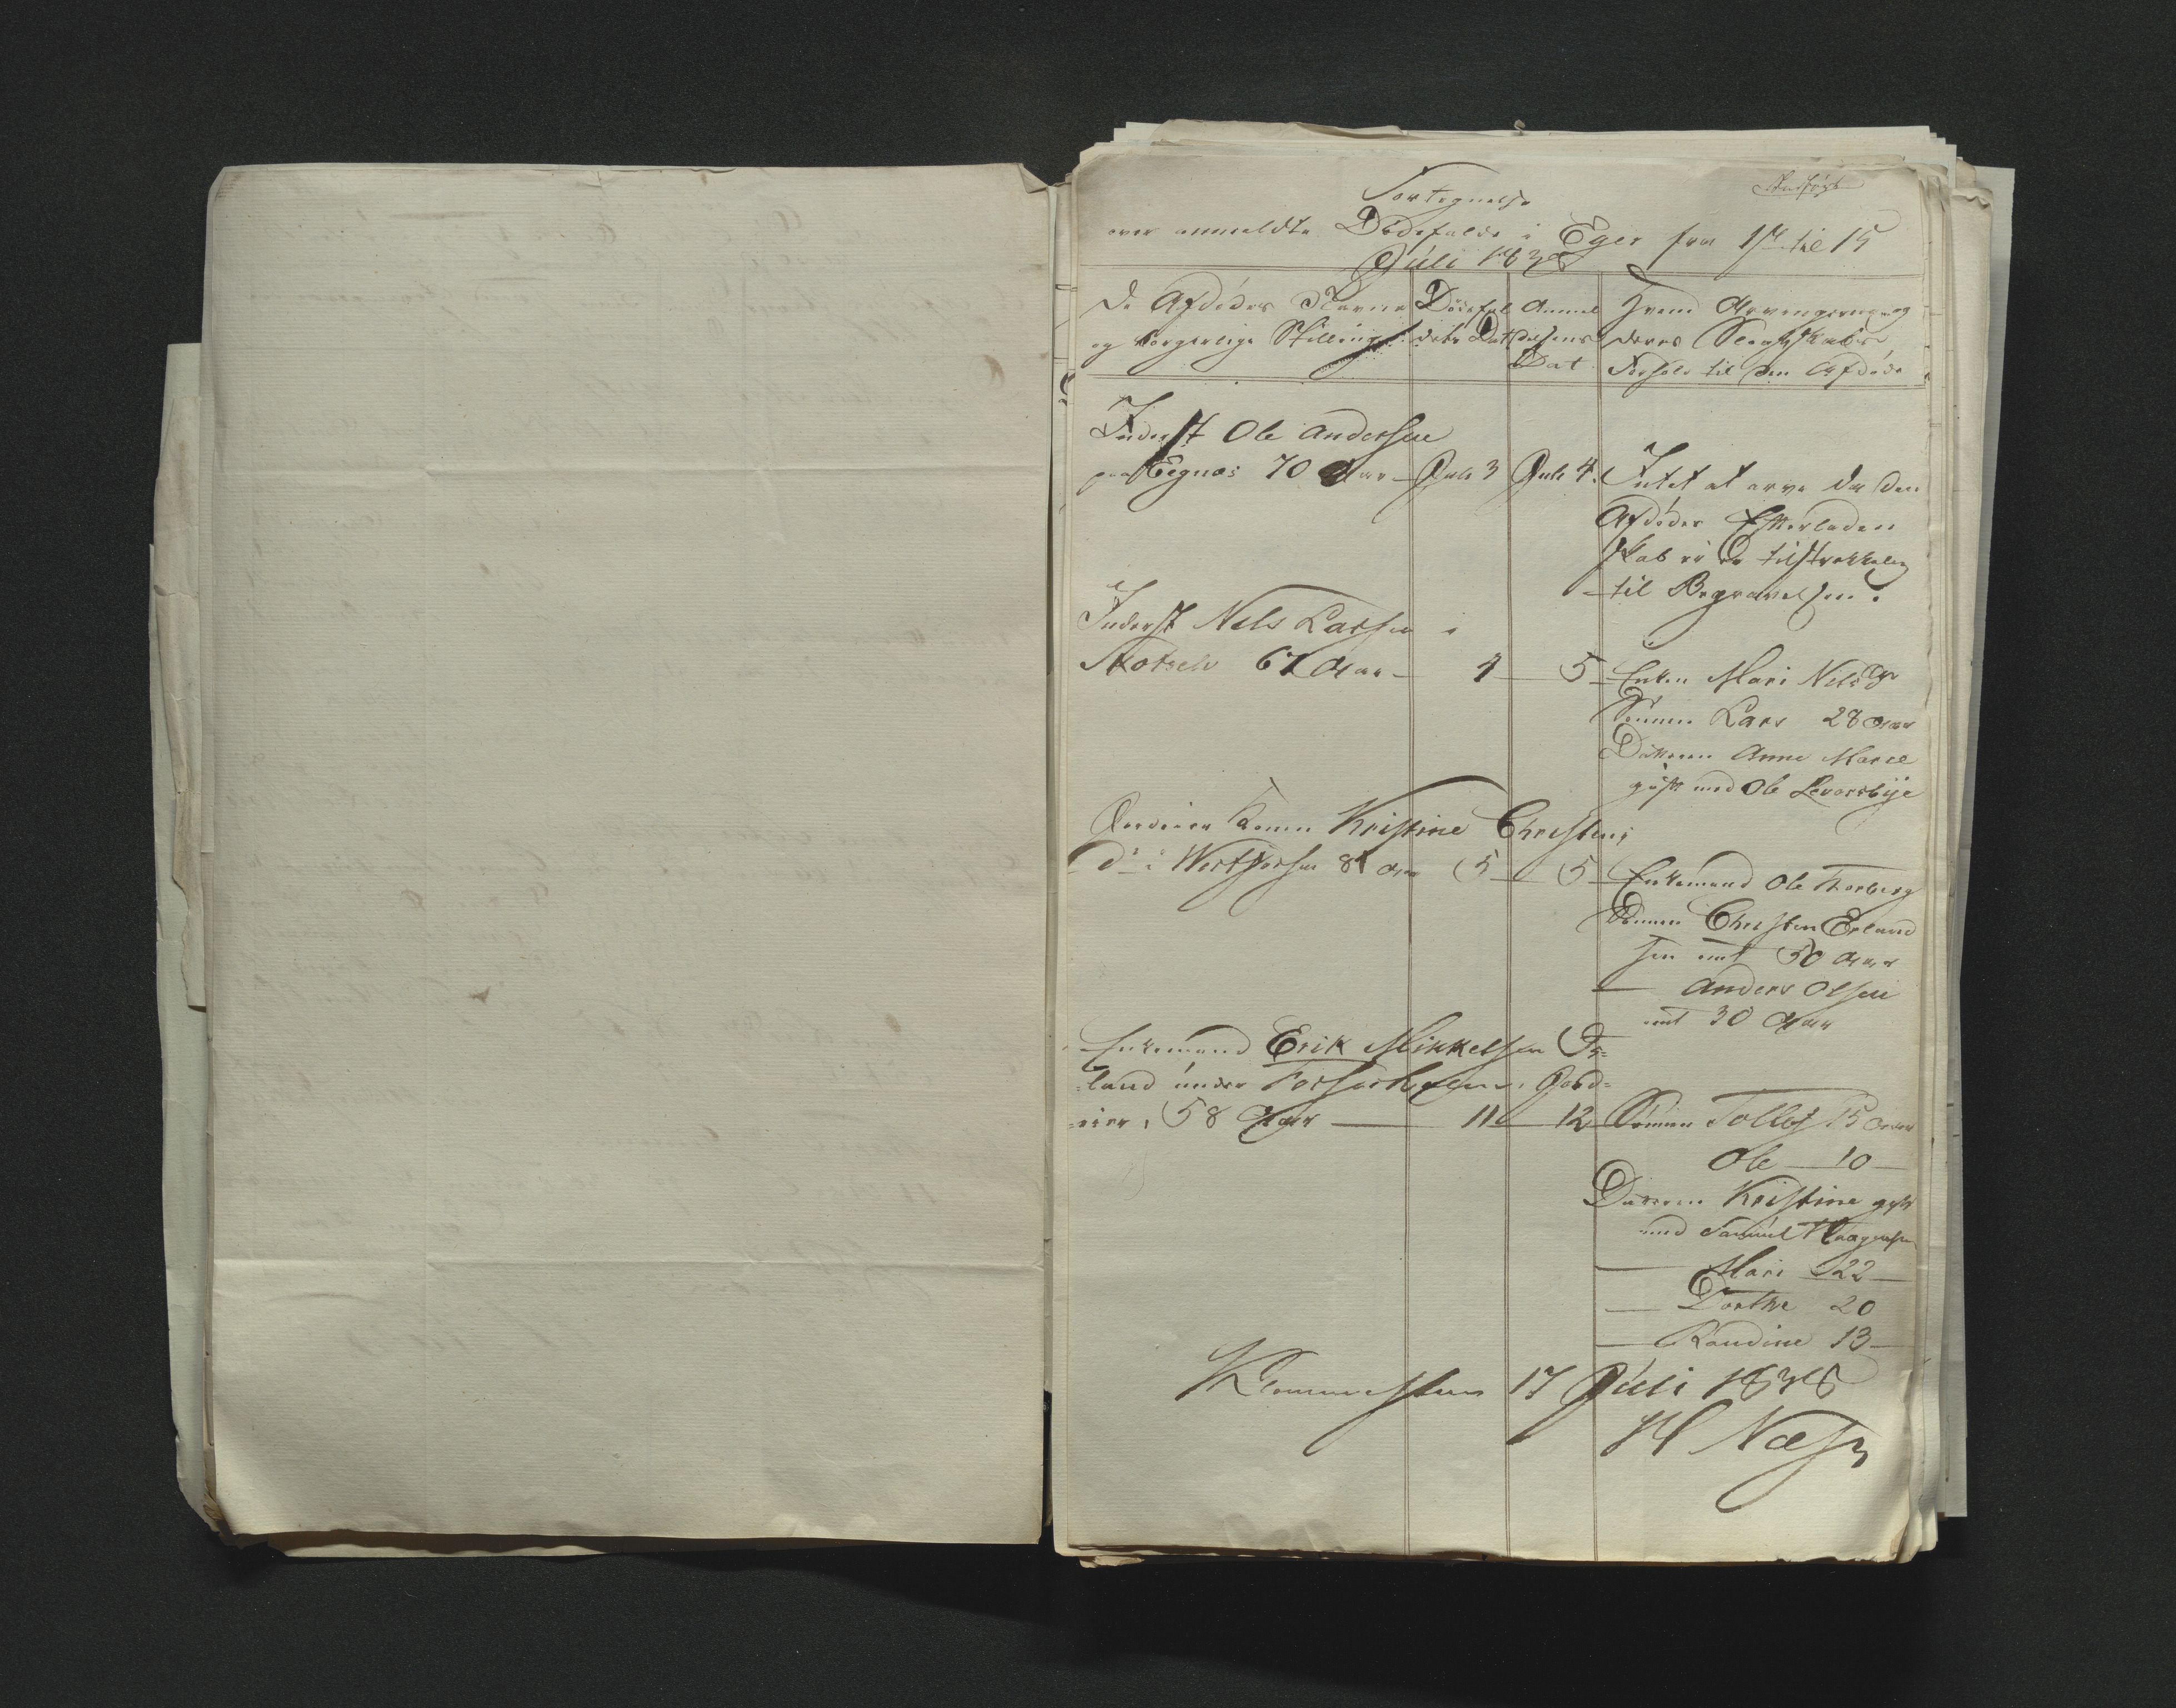 Fortegnelse
over anmeldte Dödsfalde i Eger fra 1ste til 15
Juli 1838
De Afdödes Navne
og borgerlige Stilling
Dödsfal
dets Dat
Anmel
delsens
Dat
Hvem Arvingerne og
deres Slægtskabs
Forhold til den Afdöde
Inderst Ole Andersen
paa Tegnæs 70 Aar — Juli 3 Juli 4.
Intet at arve da den
Afdödes Efterladen
skab er tilstrækkelig
til Begravelsen.
Inderst Nels Larsen i
Skotselv 67 Aar — 4 — 5 — Enken Mari Nelsdr
Sönnen Lars 28 Aar
Datteren Anne Marie
gift med Ole Leversbye
Kone Kristine Christens
Dr i Westfossen Aar 5 — 5 — Enkemand Ole Thorberg
Sönnen Christen Erland
sen omt 50 Aar
— Anders Olsen
omt 30 Aar
Enkemand Erik Mikkelsen
land under Fosserholmen, Jord=
eier, 58 Aar — 11 — 12 — Sönnen Tollef 15 Aar
Ole — 10 —
Datteren Kristine gift
med Samuel
— Mari 22 —
— Dorthe 20
— Randine 13 —
Klommesteen 17 Juli 1838
H Næss